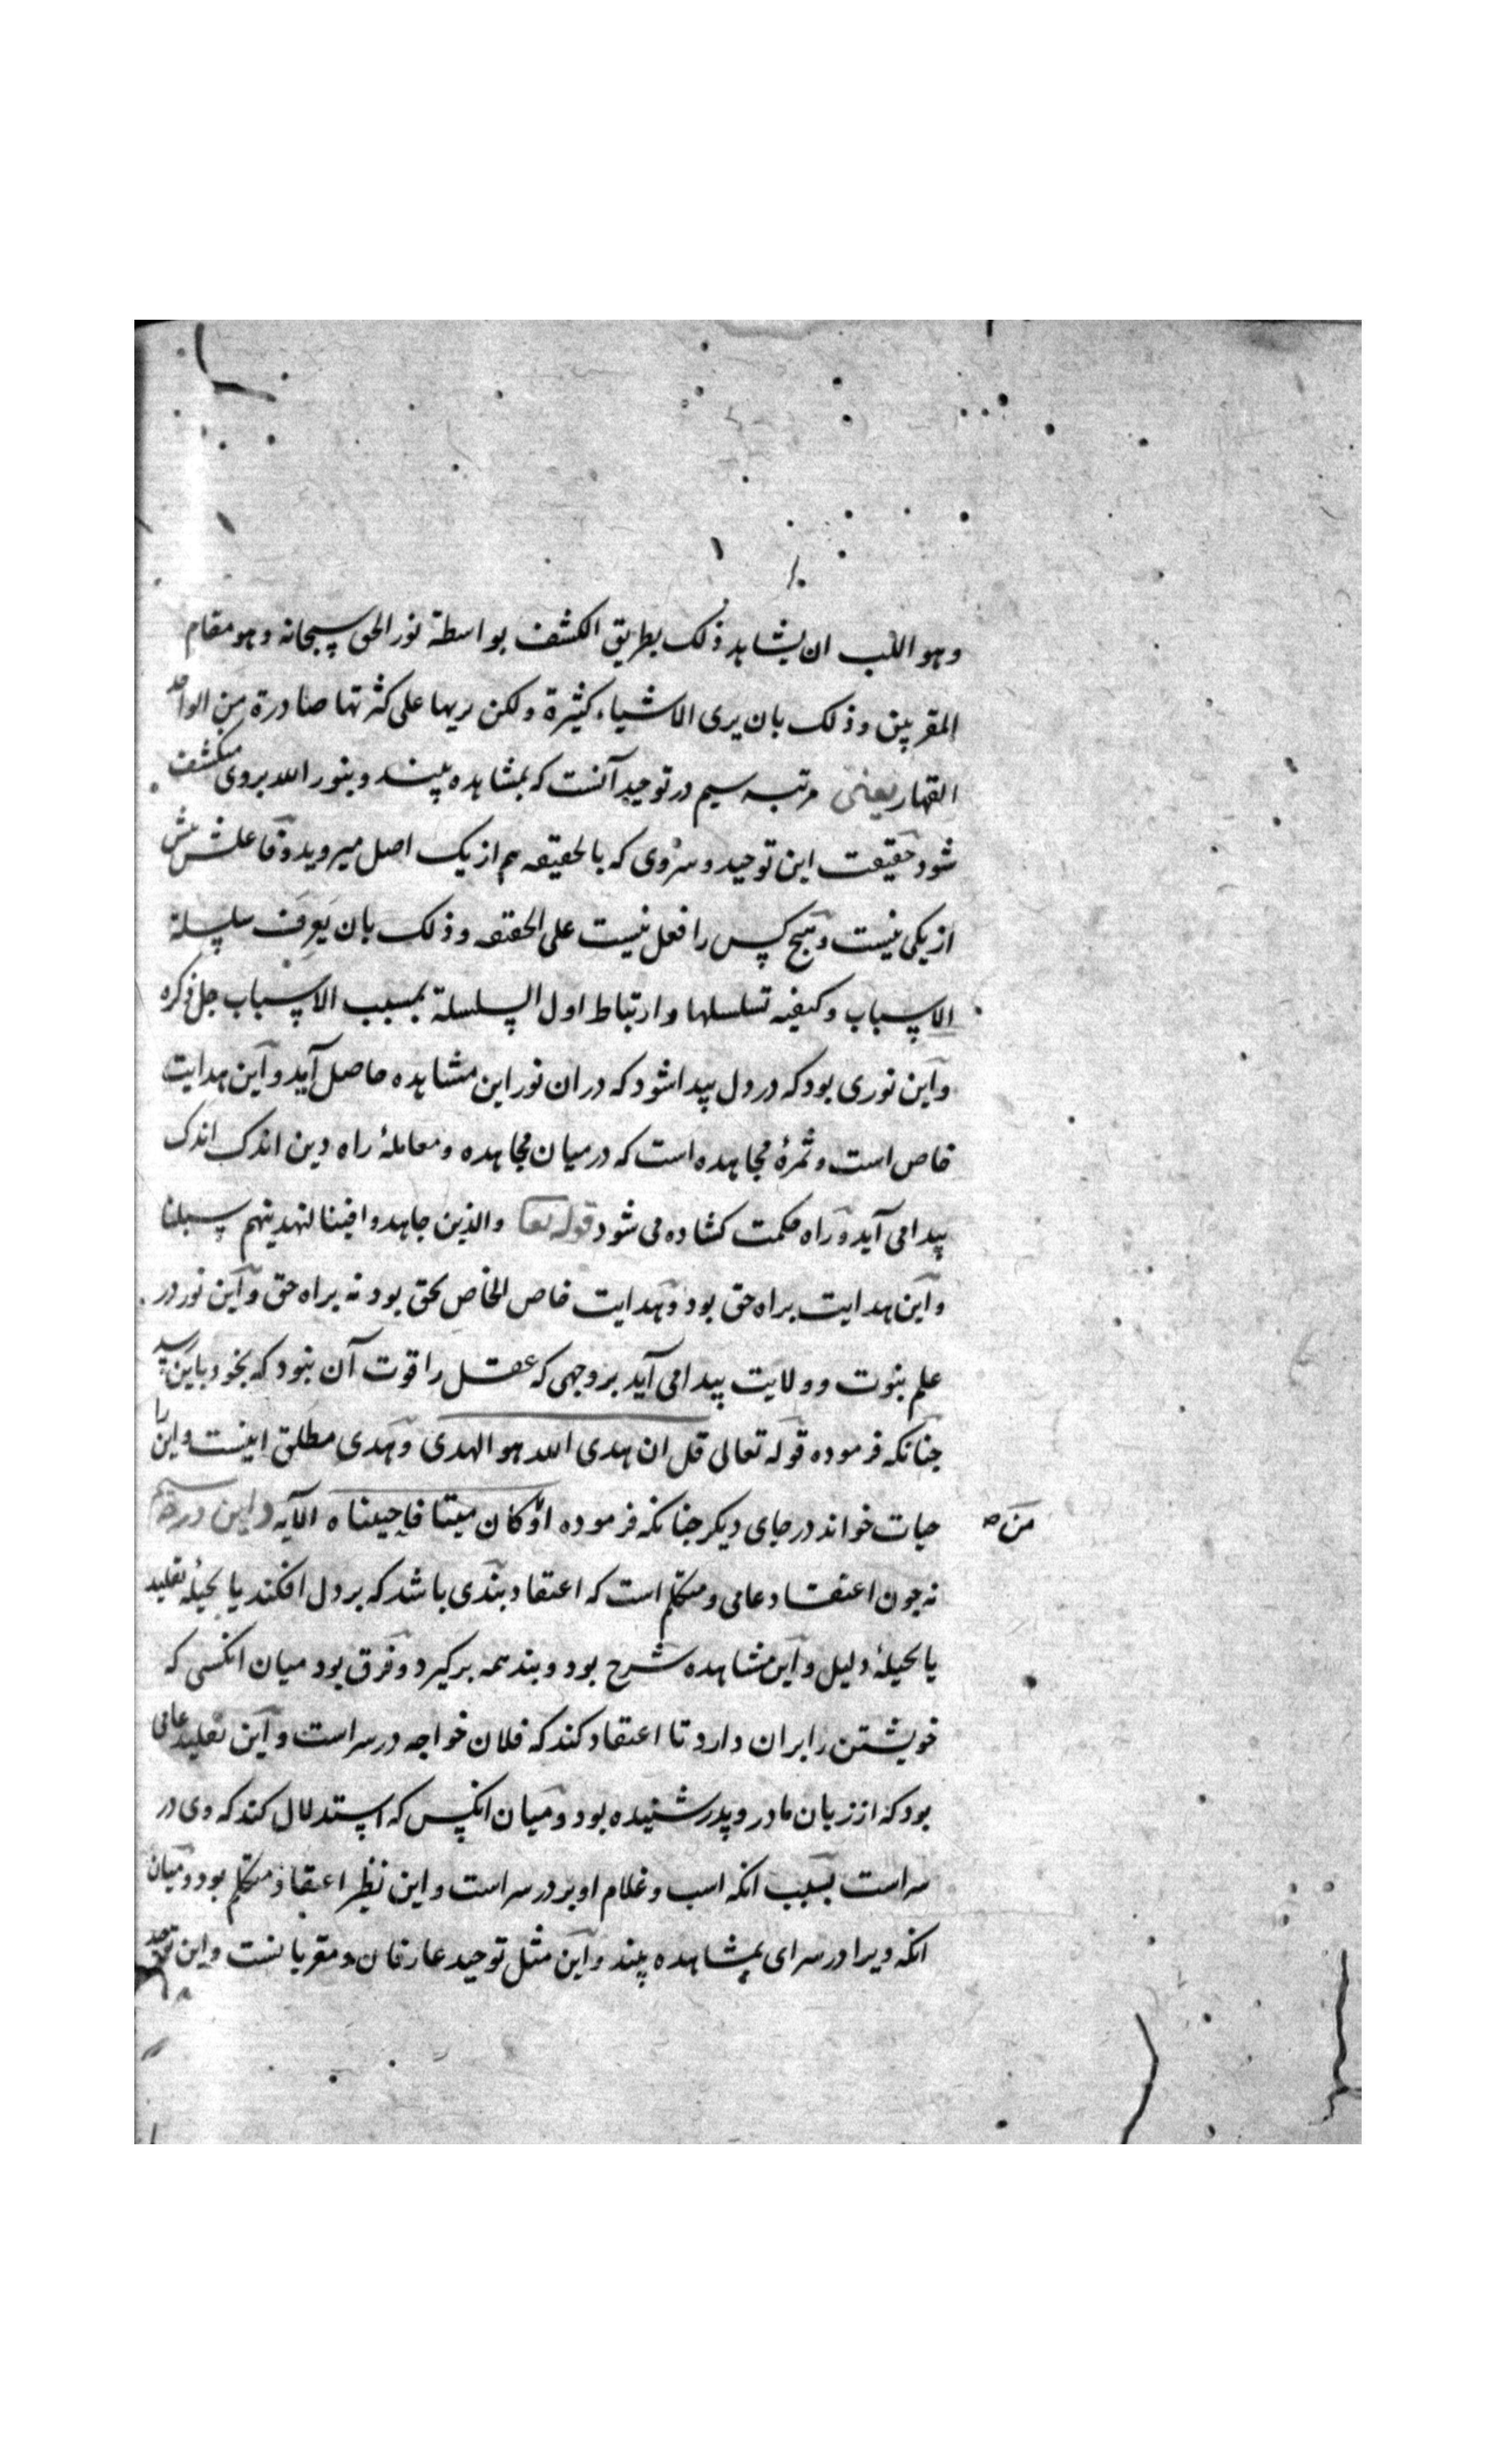 وهو اللب ان یشاهد ذلک بطریق الکشف بواسطة نور الحق سبحانه وهو مقام
المقربین وذلک بان یری الاشیاء کثیرة ولکن یریها علی کثرتها صادرة من الواحد
القهار یعنی مرتبه سیم در توحید آنست که بمشاهده بیند و بنور الله بروی منکشف
شود حقیقت این توحید و که بالحقیقه هم از یک اصل میروید و فاعلش بیش
از یکی نیست و هیچ کس را فعل نیست علی الحقیقه وذلک بان یعرف سلسلة
الاسباب وکیفیه تسلسلها وارتباط اول السلسلة بمسبب الاسباب جل ذکره
و این نوری بود که در دل پیدا شود که در ان نور این مشاهده حاصل آید و این هدایت
خاص است و ثمرۀ مجاهده است که در میان مجاهده و معاملۀ راه دین اندک اندک
پیدا می آید و راه حکمت کشاده می شود قوله تعا والذین جاهدوا فینا لنهدینهم سبلنا
و این هدایت براه حق بود و هدایت خاص الخاص بحق بود نه براه حق و این نور در
علم نبوت و ولایت پیدا می آید بروجهی که عقل را قوت آن نبود که بخود باین رسد
جنانکه فرموده قوله تعالی قل ان هدی الله هو الهدی و هدی مطلق اینست و این را
حیات خواند در جای دیکر جنانکه فرموده او کان میتا فاحییناه الآیه و این در
من صح
نه جون اعتقاد عامی و متکلم است که اعتقاد بندی باشد که بر دل افکند یا بحیلۀ تقلید
یا بحیلۀ دلیل و این مشاهده شرح بود و بند همه برکیرد و فرق بود میان انکسی که
خویشتن را بران دارد تا اعتقاد کند که فلان خواجه در سر است و این تقلید عامی
بود که از زبان مادر و پدر شنیده بود و میان انکس که استدلال کند که وی در
سر است بسبب انکه اسب و غلام او بر در سر است و این نظیر اعتقاد متکلم بود و میان
انکه ویرا در سرای بمشاهده بیند و این مثل توحید عارفان و مقربانست و این توحید